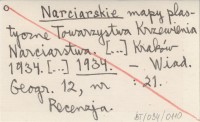 Narciarskie mapy plas-
tyczne Towarzystwa Krzewienia
Narciarstwa. [...] Kraków
1934. [...] 1934. – Wiad.
Geogr. 12, nr : 21.
Recenzja.
BJ/034/0110